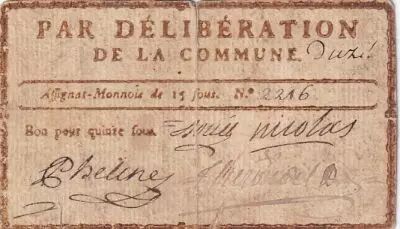 PAR DÉLIBÉRATION
DE LA COMMUNE
Assignat-Monnoie de 15 sous. N.º 2216
Bon pour quinze sous. nicolas